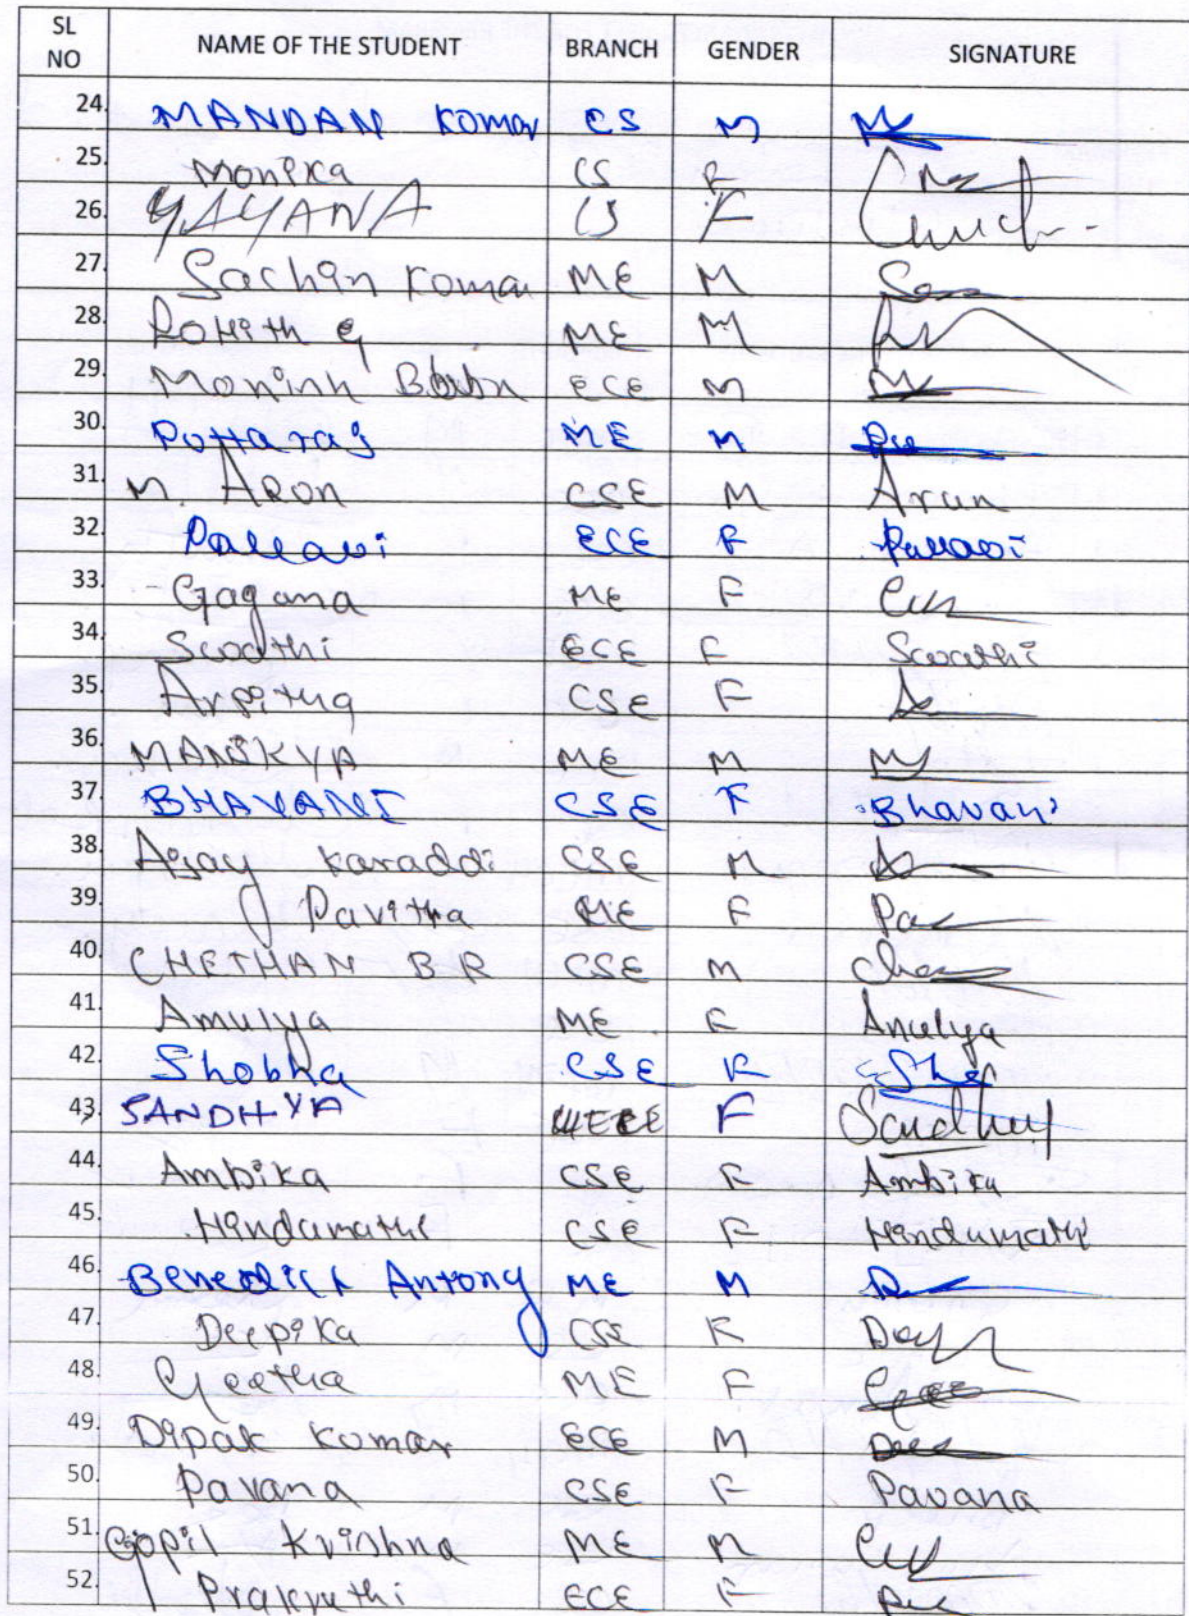 SL NO NAME OF THE STUDENT BRANCH GENDER SIGNATURE
24. MANDAN Komar CS M
25. Monika CS F
26. YAYANA CS F
27. Sachin Komar ME M
28. Rohith G ME M
29. Monish ECE M
30. Puttaraj ME M
31. M. Aron CSE M Arun
32. Pallavi ECE F Pallavi
33. Gagana ME F
34. ECE F
35. Arpitha CSE F
36. MANIKYA ME M
37. BHAVANI CSE F Bhavani
38. Ajay Karaddi CSE M
39. Pavitha ME F Pa
40. CHETHAN B R CSE M
41. Amulya ME F Amulya
42. Shobha CSE F
43. SANDHYA F
44. Ambika CSE F Ambika
45. Hindumathi CSE F Hindumathi
46. Benedict Antony ME M
47. Deepika CSE F
48. Geetha ME F
49. Dipak Komar ECE M
50. Pavana CSE F Pavana
51. Gopil Krishna ME M
52. Prakruthi ECE F